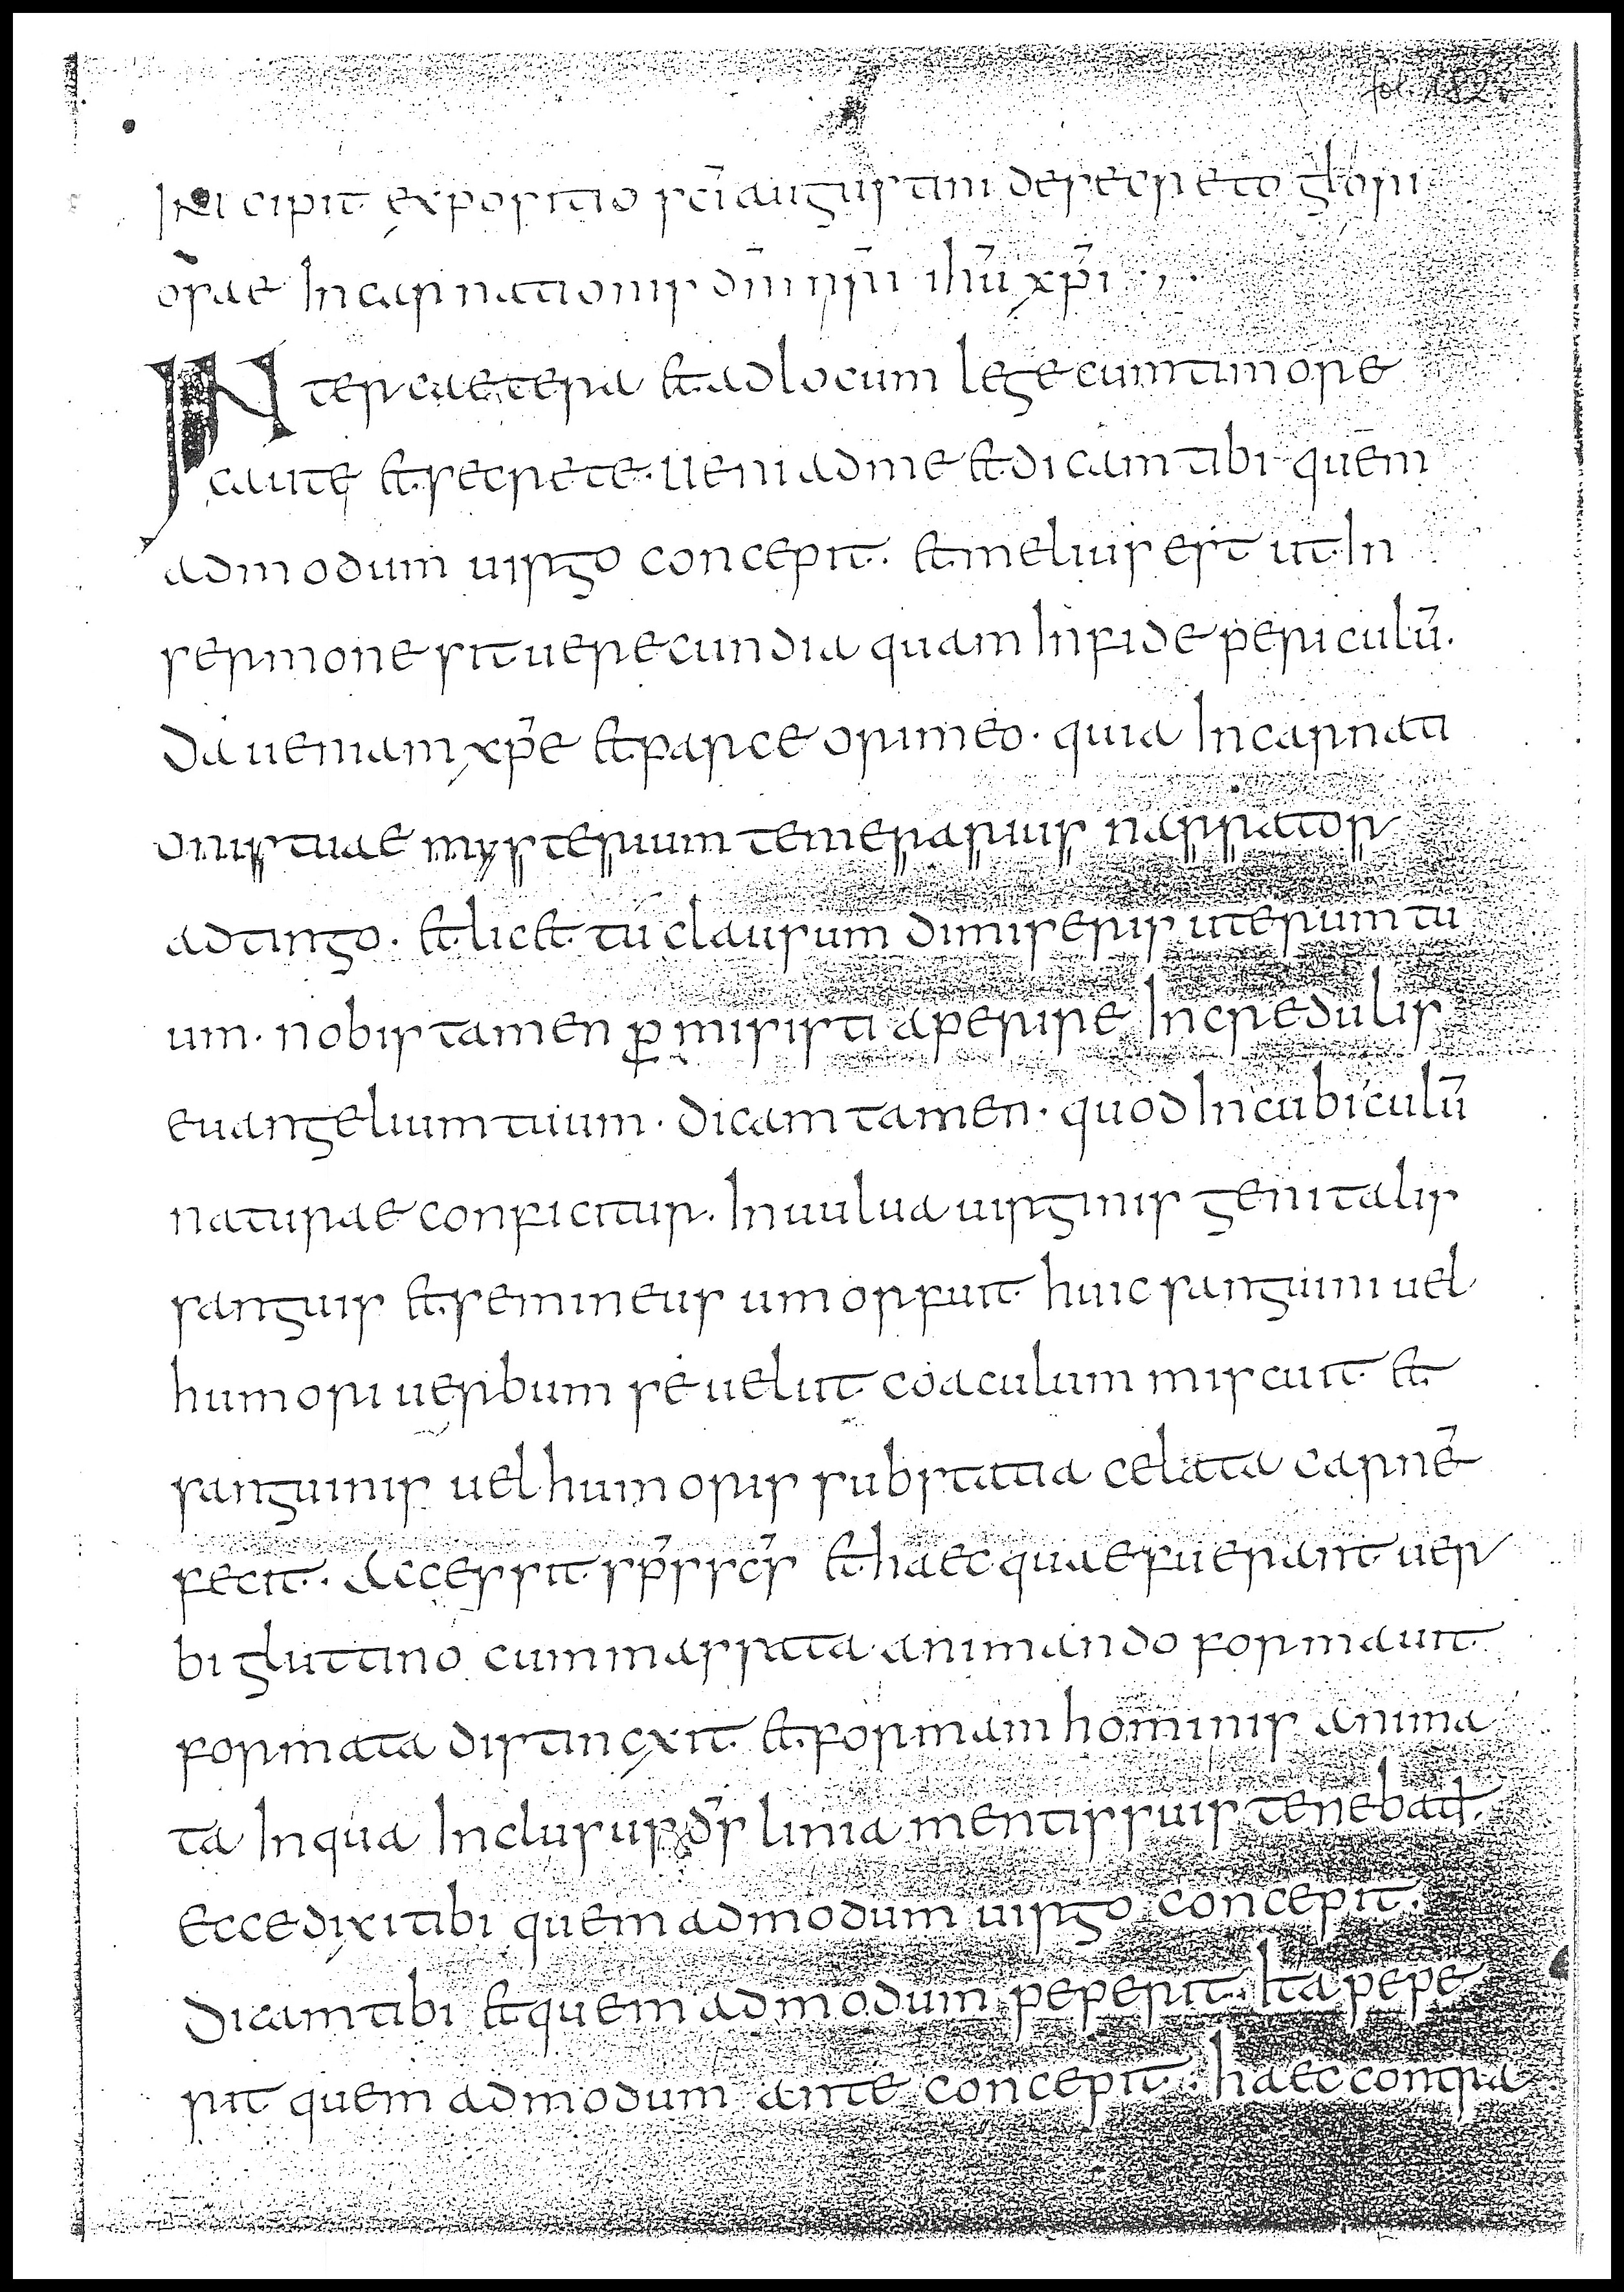 fol. 182r
INcipit expositio sc̄i augustini desecreto glori
osae Incarnationis dn̄i nr̄i ihū xp̄i
IN ter caetera & adlocum lege cumtimore
caute & secrete. Ueni adme & dicam tibi quem
admodum uirgo concepit. & melius est ut In
sermone sit uerecundia quam Infide periculū.
Da ueniam xp̄e & parce ori meo. quia Incarnati
onis tuae mysterium temerarius narrator
adtingo. & lic& tu clausum dimiseris uterum tu
um. nobis tamen ꝑmisisti aperire Incredulis
euangelium tuum. dicam tamen. quod Incubiculū
naturae conficitur. In uulua uirginis genitalis
sanguis & semineus umor fuit huic sanguini uel
humori uerbum se uelut coaculum miscuit &
sanguinis uel humoris substatia celata carnē
fecit. Accessit sp̄s sc̄s & haec quae fuerant uer
bi gluttino cummassata animando formauit
formata distincxit & formam hominis anima
ta Inqua Inclusus d̄s liniamentis suis teneba&.
Ecce dixi tibi quemadmodum uirgo concepit.
Dicam tibi & quemadmodum peperit. Ita pepe
rit quemadmodum ante concepit. haec contra